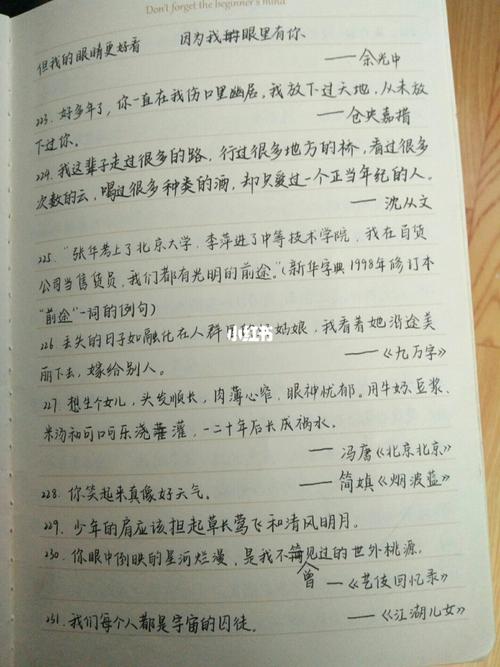 Don't forget the beginner's mind
但我的眼睛更好看 因为我眼里有你
——余光中
223. 好多年了，你一直在我伤口里幽居，我放下过天地，从未放
下过你。 ——仓央嘉措
224. 我这辈子走过很多的路，行过很多地方的桥，看过很多
次数的云，喝过很多种类的酒，却只爱过一个正当年纪的人。
——沈从文
225. "张华考上了北京大学，李萍进了中等技术学院，我在百货
公司当售货员，我们都有光明的前途。"（新华字典1998年修订本
"前途"一词的例句）
226 丢失的日子如融化在人群里 姑娘，我看着她沿途美
丽下去，嫁给别人。 ——《九万字》
227. 想生个女儿，头发顺长，肉薄心窄，眼神忧郁。用牛奶、豆浆、
米汤和可口可乐浇灌，一二十年后长成祸水。
——冯唐《北京北京》
228. 你笑起来真像好天气。 ——简媜《烟波蓝》
229. 少年的肩应该担起草长莺飞和清风明月。
230. 你眼中倒映的星河烂漫，是我不曾见过的世外桃源。
——《艺伎回忆录》
231. 我们每个人都是宇宙的囚徒。 ——《江湖儿女》
小红书